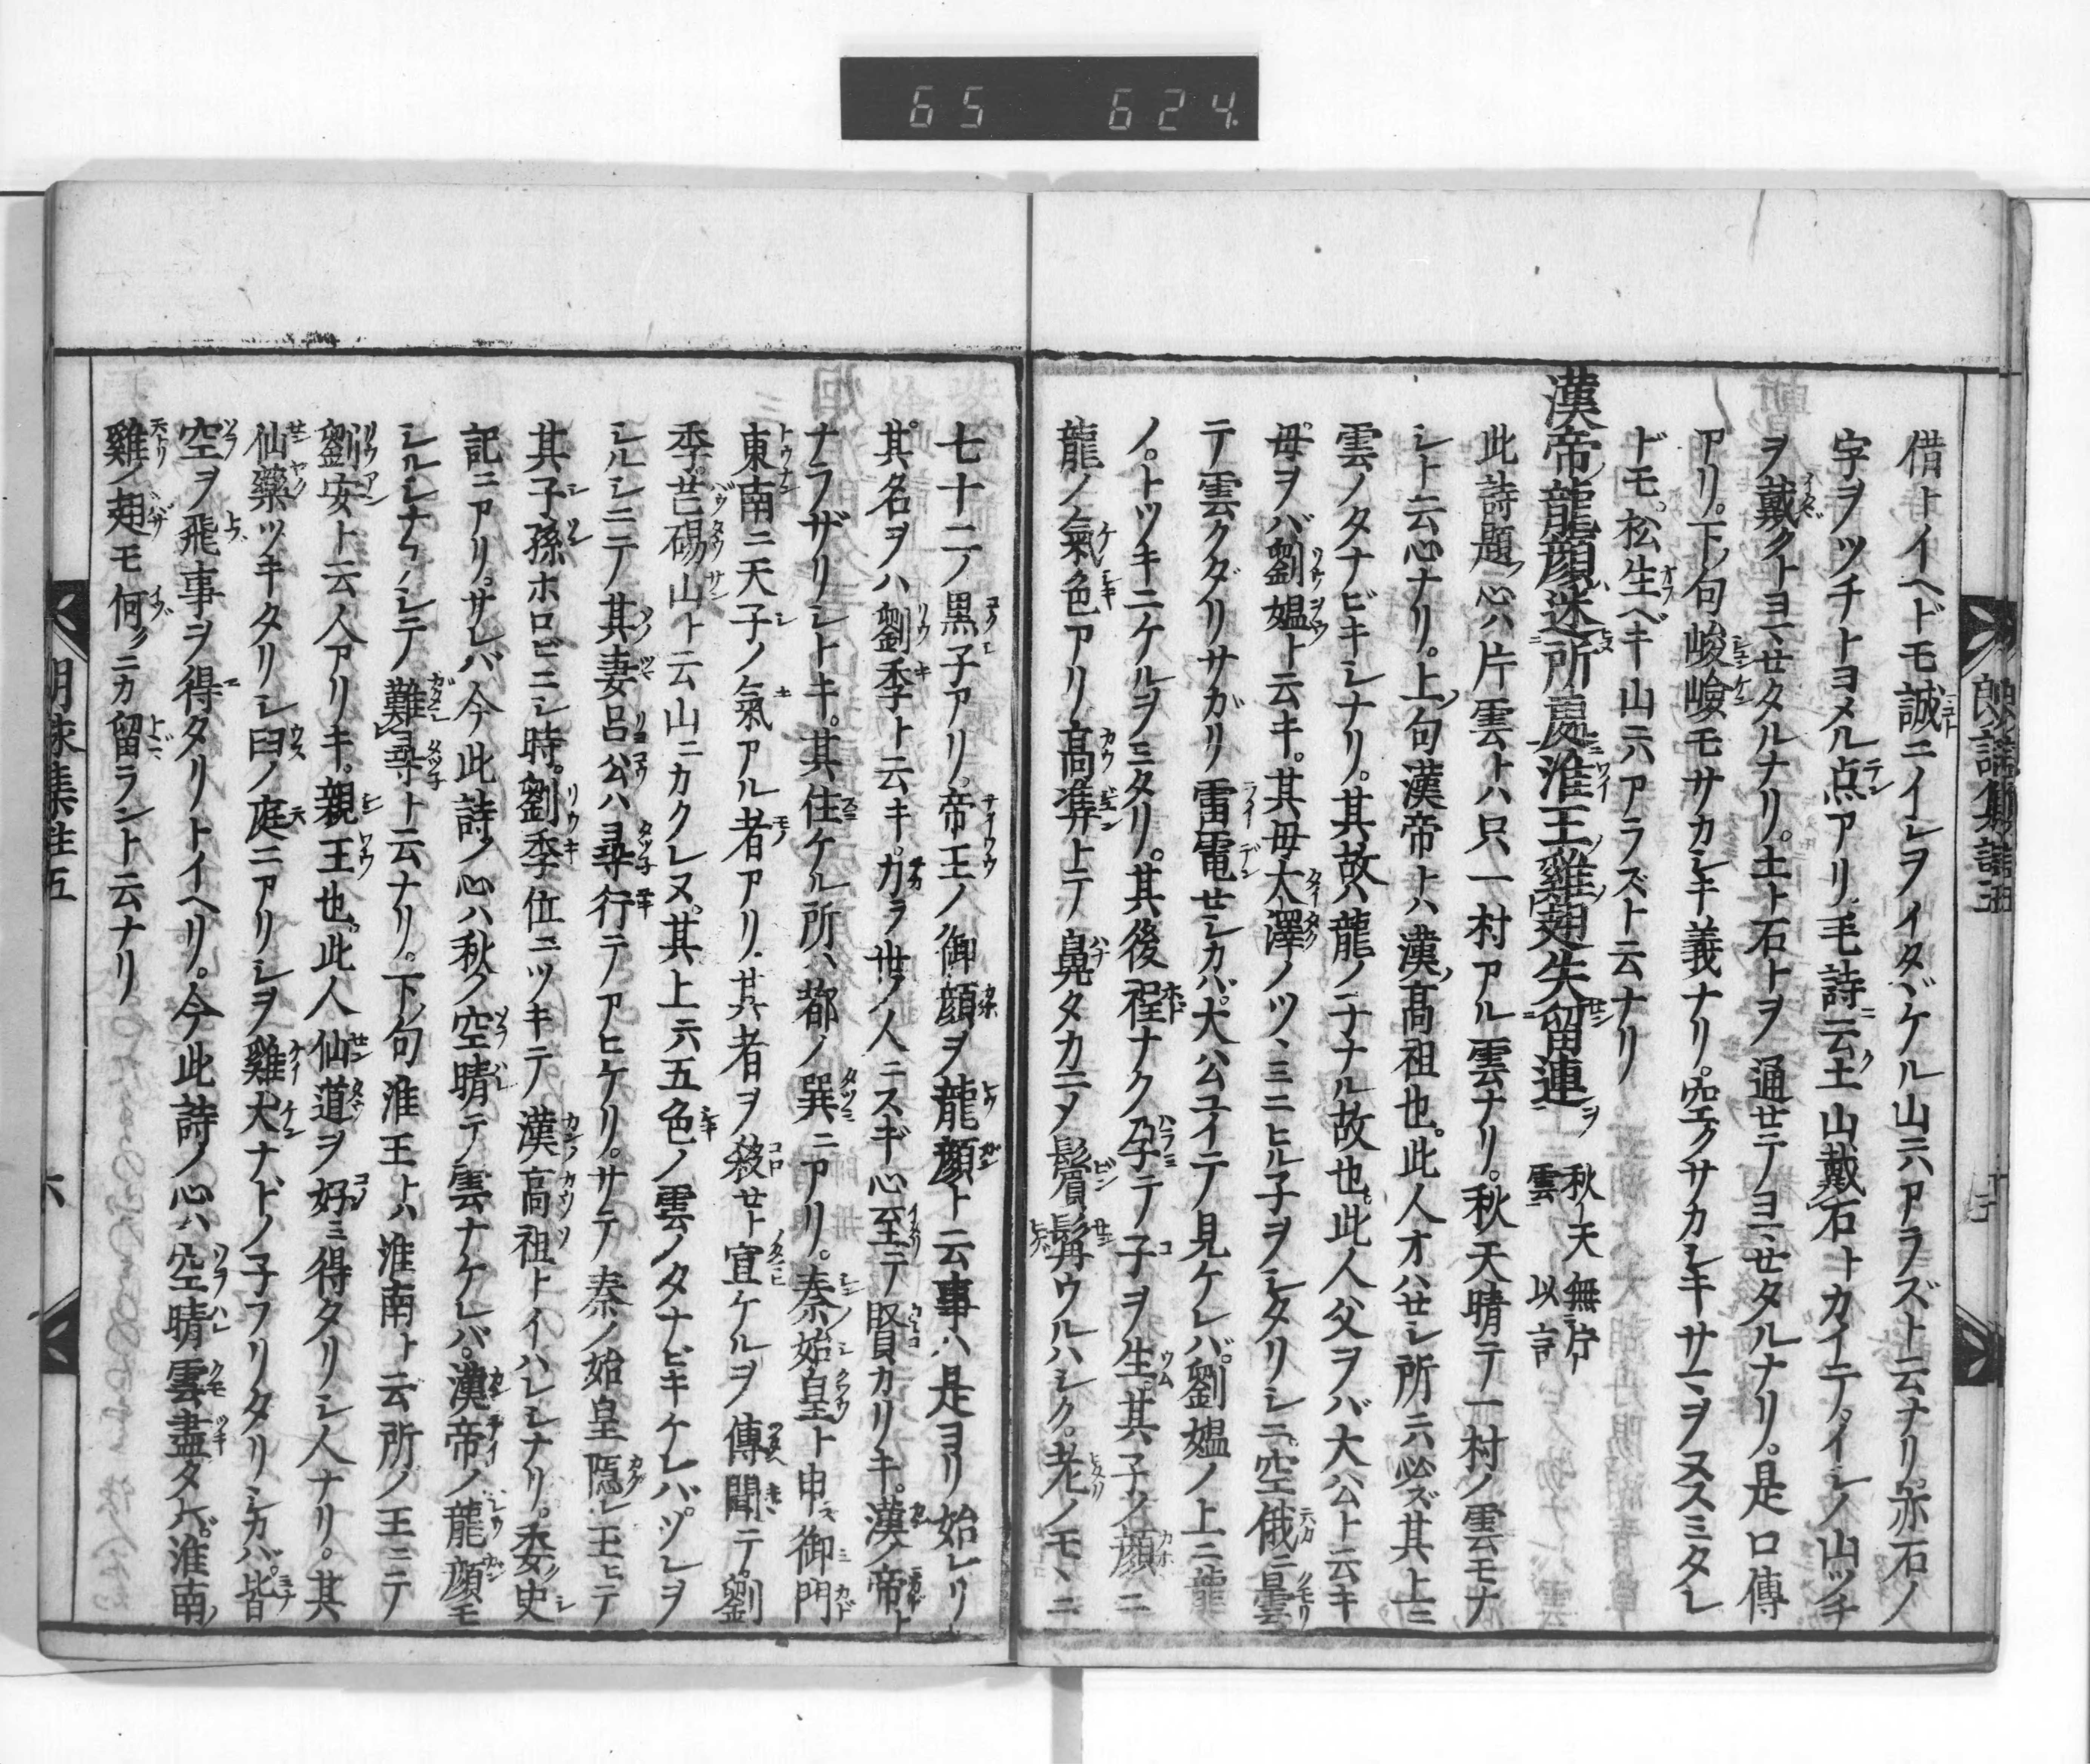 65 624
借トイヘドモ誠ニイシヲイタヾケル山ニハアラズト云ナリ。亦石ノ
字ヲツチトヨメル点アリ毛詩ニ云土山戴石トカイテ。イシノ山ツチ
ヲ戴クトヨマセタルナリ。土ト石トヲ通セテノヨマセタルナリ。是口傳
アリ。下ノ句峻嶮モサカシキ義ナリ。空クサカシキサマヲヌスミタレ
ドモ。松生ベキ山ニハアラズト云ナリ
漢帝ノ龍顔迷所處淮王ノ雞翅失留連ヲ 秋ノ天無片雲以言
此詩題ノ心ハ片雲トハ只一村アル雲ナリ。秋天晴テ一村ノ雲モナ
シト云心ナリ。上ノ句漢帝トハ漢ノ高祖也。此人オハセシ所ニハ必ズ其上ニ
雲ノタナビキシナリ。其故ハ龍ノ子ナル故也。此人父ヲバ大公ト云キ
母ヲバ劉媼ト云キ。其母大澤ノツヽミニヒル子ヲシタリシニ。空俄ニ曇
テ雲クダリサガリ雷電セシカバ。大公ユイテ見ケレバ。劉媼ノ上ニ龍
ノ。トツキニケルヲミタリ。其後程ナク孕テ子ヲ生。其子ノ顔ニ
龍ノ氣色アリ高準上テ鼻タカニメ鬢髯ウルハシク。老ノモヽニ
朗詠集註五
七十二ノ黒子アリ。帝王ノ御顔ヲ龍顔ト云事ハ是ヨリ始レリ
其名ヲハ劉季ト云キ。カラ世ノ人ニスギ心至テ賢カリキ。漢ノ帝ト
ナラザリシトキ。其住ケル所ハ都ノ巽ニアリ。秦ノ始皇ト申ス御門
東南ニ天子ノ氣アル者アリ。其者ヲ殺セト宣ケルヲ傳聞テ。劉
季芒碭山ト云山ニカクレヌ。其上ニハ五色ノ雲ノタナビキケレバ。ソレヲ
シルシニテ其妻呂公ハ尋行テノアヒケリ。サテ秦ノ始皇隠レ玉ヒテ
其子孫ホロビニシ時。劉季位ニツキテ漢高祖トイハレシナリ。委史
記ニアリ。サレバ今此詩ノ心ハ秋ノ空晴テ雲ナケレバ。漢帝ノ龍顔モ
シルシナクノシテ難尋ト云ナリ。下ノ句淮王トハ淮南ト云所ノ王ニテ
劉安ト云人アリキ。親王也。此人仙道ヲ好ミ得タリシ人ナリ。其
仙藥ツキタリシ臼ノ庭ニアリシヲ雞犬ナドノ子フリタリシカバ。皆
空ヲ飛事ヲ得タリトイヘリ。今此詩ノ心ハ空晴雲盡タレバ。淮南ノ
雞ノ翅モ何クニカ留ラント云ナリ
六